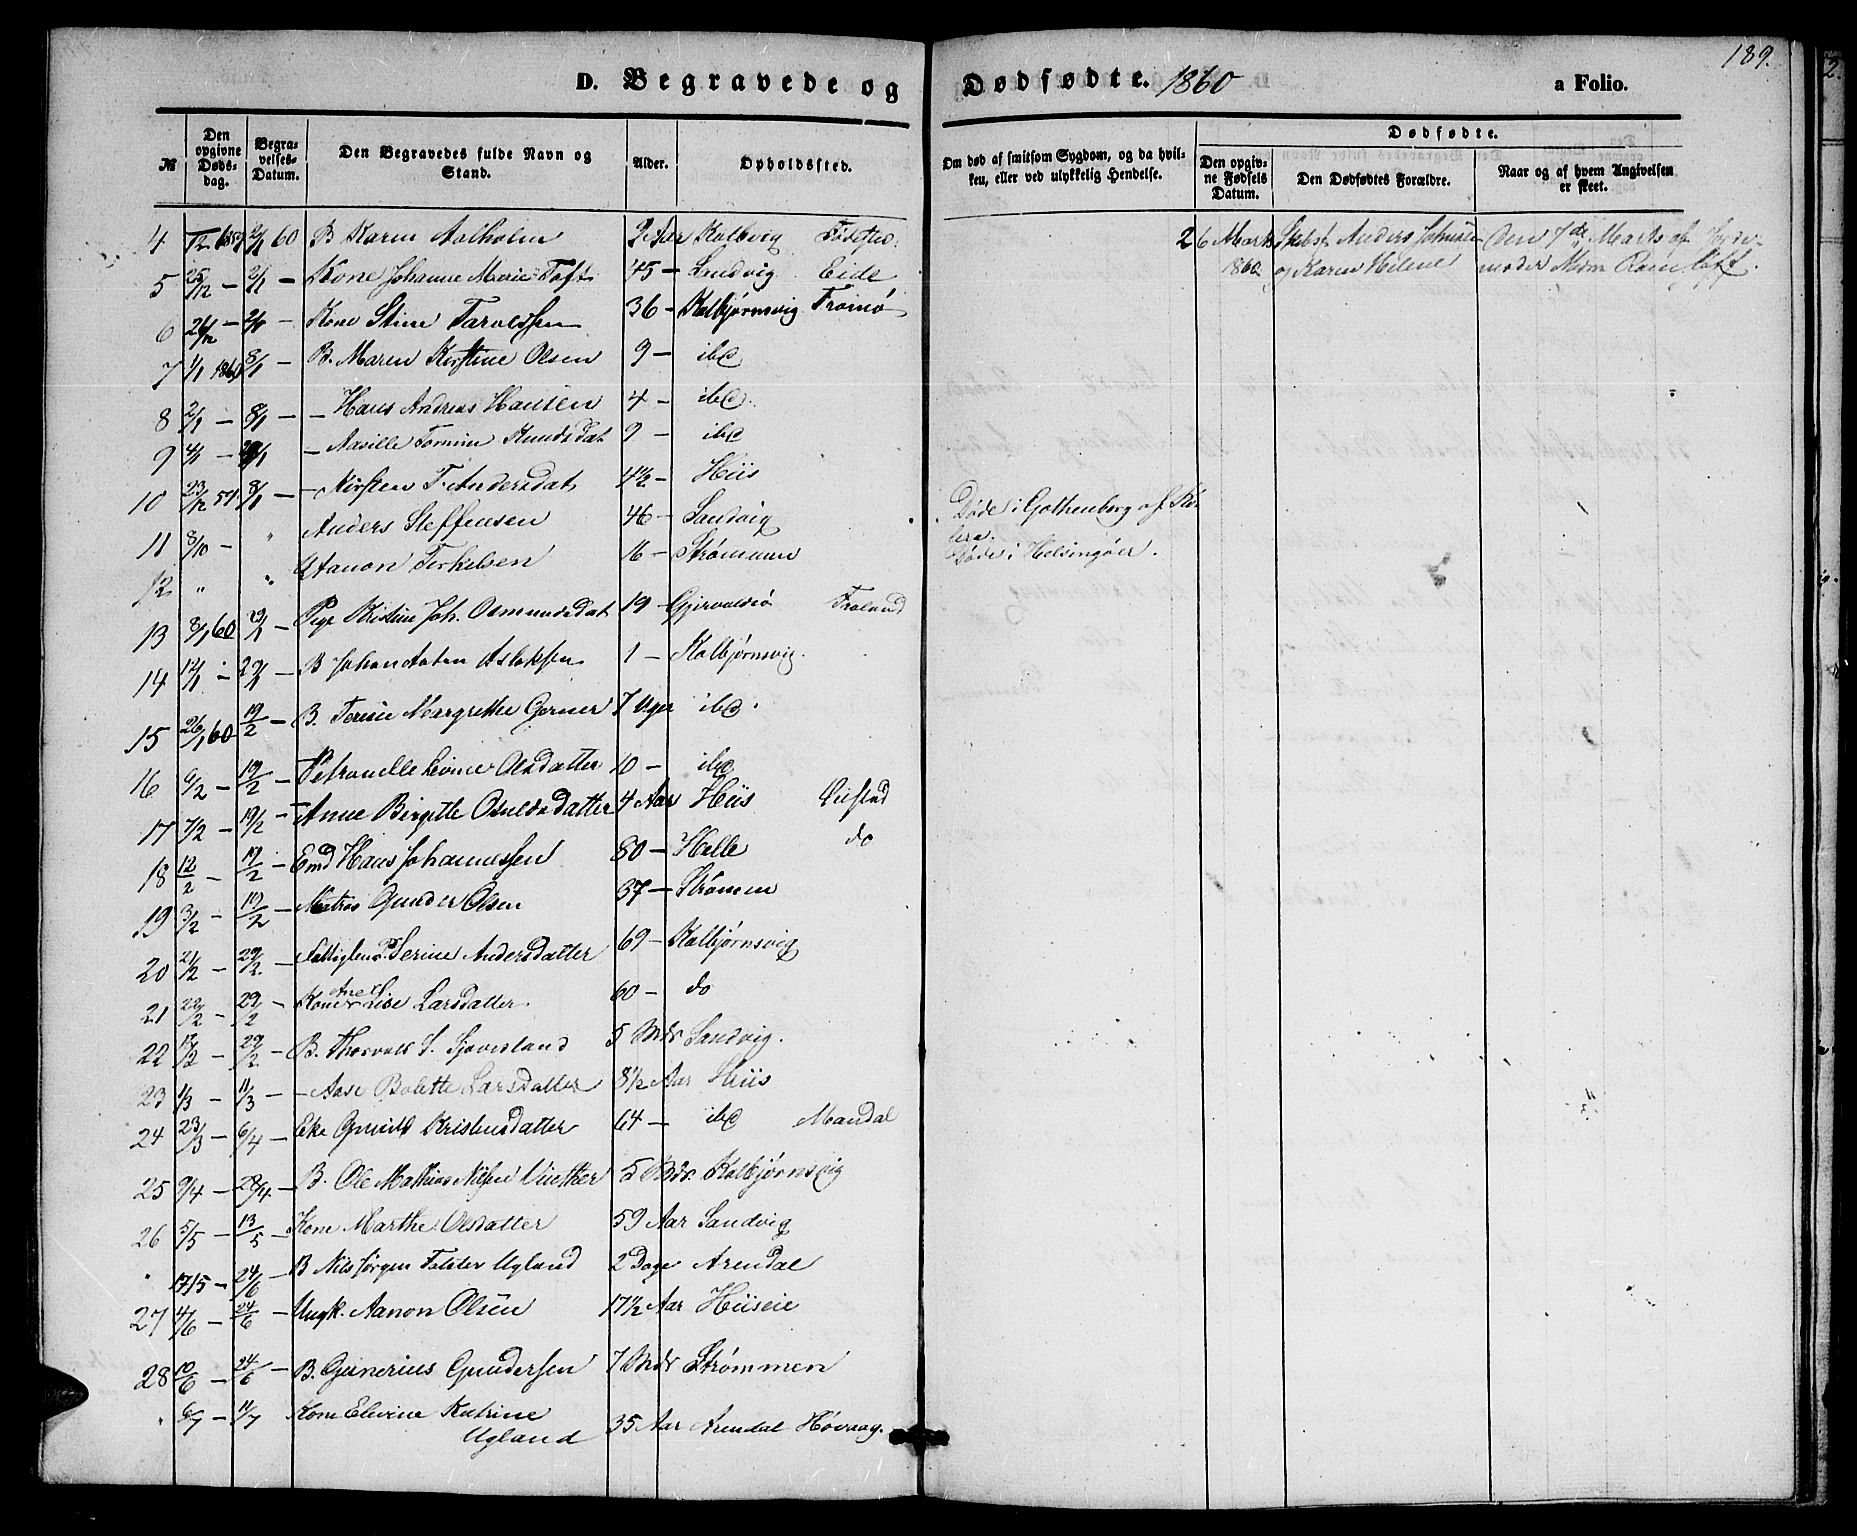 189.
D. Begravede og Dødfødte. 1860 a Folio.
№ Den opgivne Dødsdag. Begravelses-Datum. Den Begravedes fulde Navn og Stand. Alder. Opholdssted. Om død af smitsom Sygdom, og da hvilken, eller ved ulykkelig Hendelse. Dødfødte. Den opgivne Fødsels Datum. Den Dødfødtes Forældre. Naar og af hvem Angivelsen er skeet.
4 2/1 60 B Karen Aalholm 2 Aar Kalvvig Fødested: 2 6 Marts Anders Johnsen Den 7de Marts af Jorde-
5 25/12 – 2/1 – Kone Johanne Marie Toft 45 – Sandvig Eide 1860 og Karen Helene moder Mdm
6 26/12 – 2/1 – Kone Stine Taroldsen 36 – Kolbjørnsvig Tromø
7 1/1 1860 8/1 – B. Maren Kirstine Olsen 9 – ibd
8 2/1 – 8/1 – – Hans Andreas Hansen 4 – ibd.
9 4/1 – – Tomine Knudsdat 9 – ibd
10 23/12 59 8/1 – – Kirsten T. Andersdat 4 1/2 – Hiis
11 8/10 – " Anders Steffensen 46 – Sandvig Døde i Gothenborg af Kolera.
12 " " Aanon Terkelsen 16 – Strømmen Døde i Helsingöer.
13 8/1 60 29/1 – Pige Kistine Joh. Osmundsdat 19 – Gjervoldsø Froland
14 12/1 – 29/1 – B Johan Anton Aslaksen 1 – Kolbjørnsvig.
15 26/1 60 19/2 – B. Terese Margrethe Gerner 7 Uger ibd.
16 6/2 – 19/2 – Petronelle Lovine Olsdatter 10 – ibd
17 7/2 – 19/2 – Anne Birgitte Osuldsdatter 4 Aar Hiis Øiestad
18 12/2 – 19/2 – Emd Hans Johannesen 80 – Helle do
19 3/2 – 19/2 – Matros Gunder Olsen 37 – Strømen
20 21/2 – 29/2 – Serine Andersdatter 69 – Kolbjørnsvig
21 22/2 – 29/2 – Kone Ane Lise Larsdatter. 60 – do
22 19/2 – 29/2 – B. Thorvald S. Sjaverland 5 Mdr Sandvig.
23 1/3 – 11/3 – – Aase Bolette Larsdatter 8 1/2 Aar Hiis
24 23/3 – 6/4 – Eke Gunild Kristensdatter 64 – ibd Mandal
25 9/4 – 28/4 – B. Ole Mathias Nilsen 5 Mdr. Kolbjørnsvig
26 5/5 – 13/5 – Kone Marthe Olsdatter 59 Aar Sandvig
" 17/5 – 24/6 B Nils Jørgen Ugland 2 Dage Arendal
27 4/6 – 24/6 – Ungk. Aanon Olsen 17 1/2 Aar Hiiseie
28 10/6 – 24/6 – B. Gunerius Gundersen 7 Mdr Strømmen
" 6/7 – 11/7 Kone Elevine Katrine Ugland 35 Aar Arendal Høvaag.